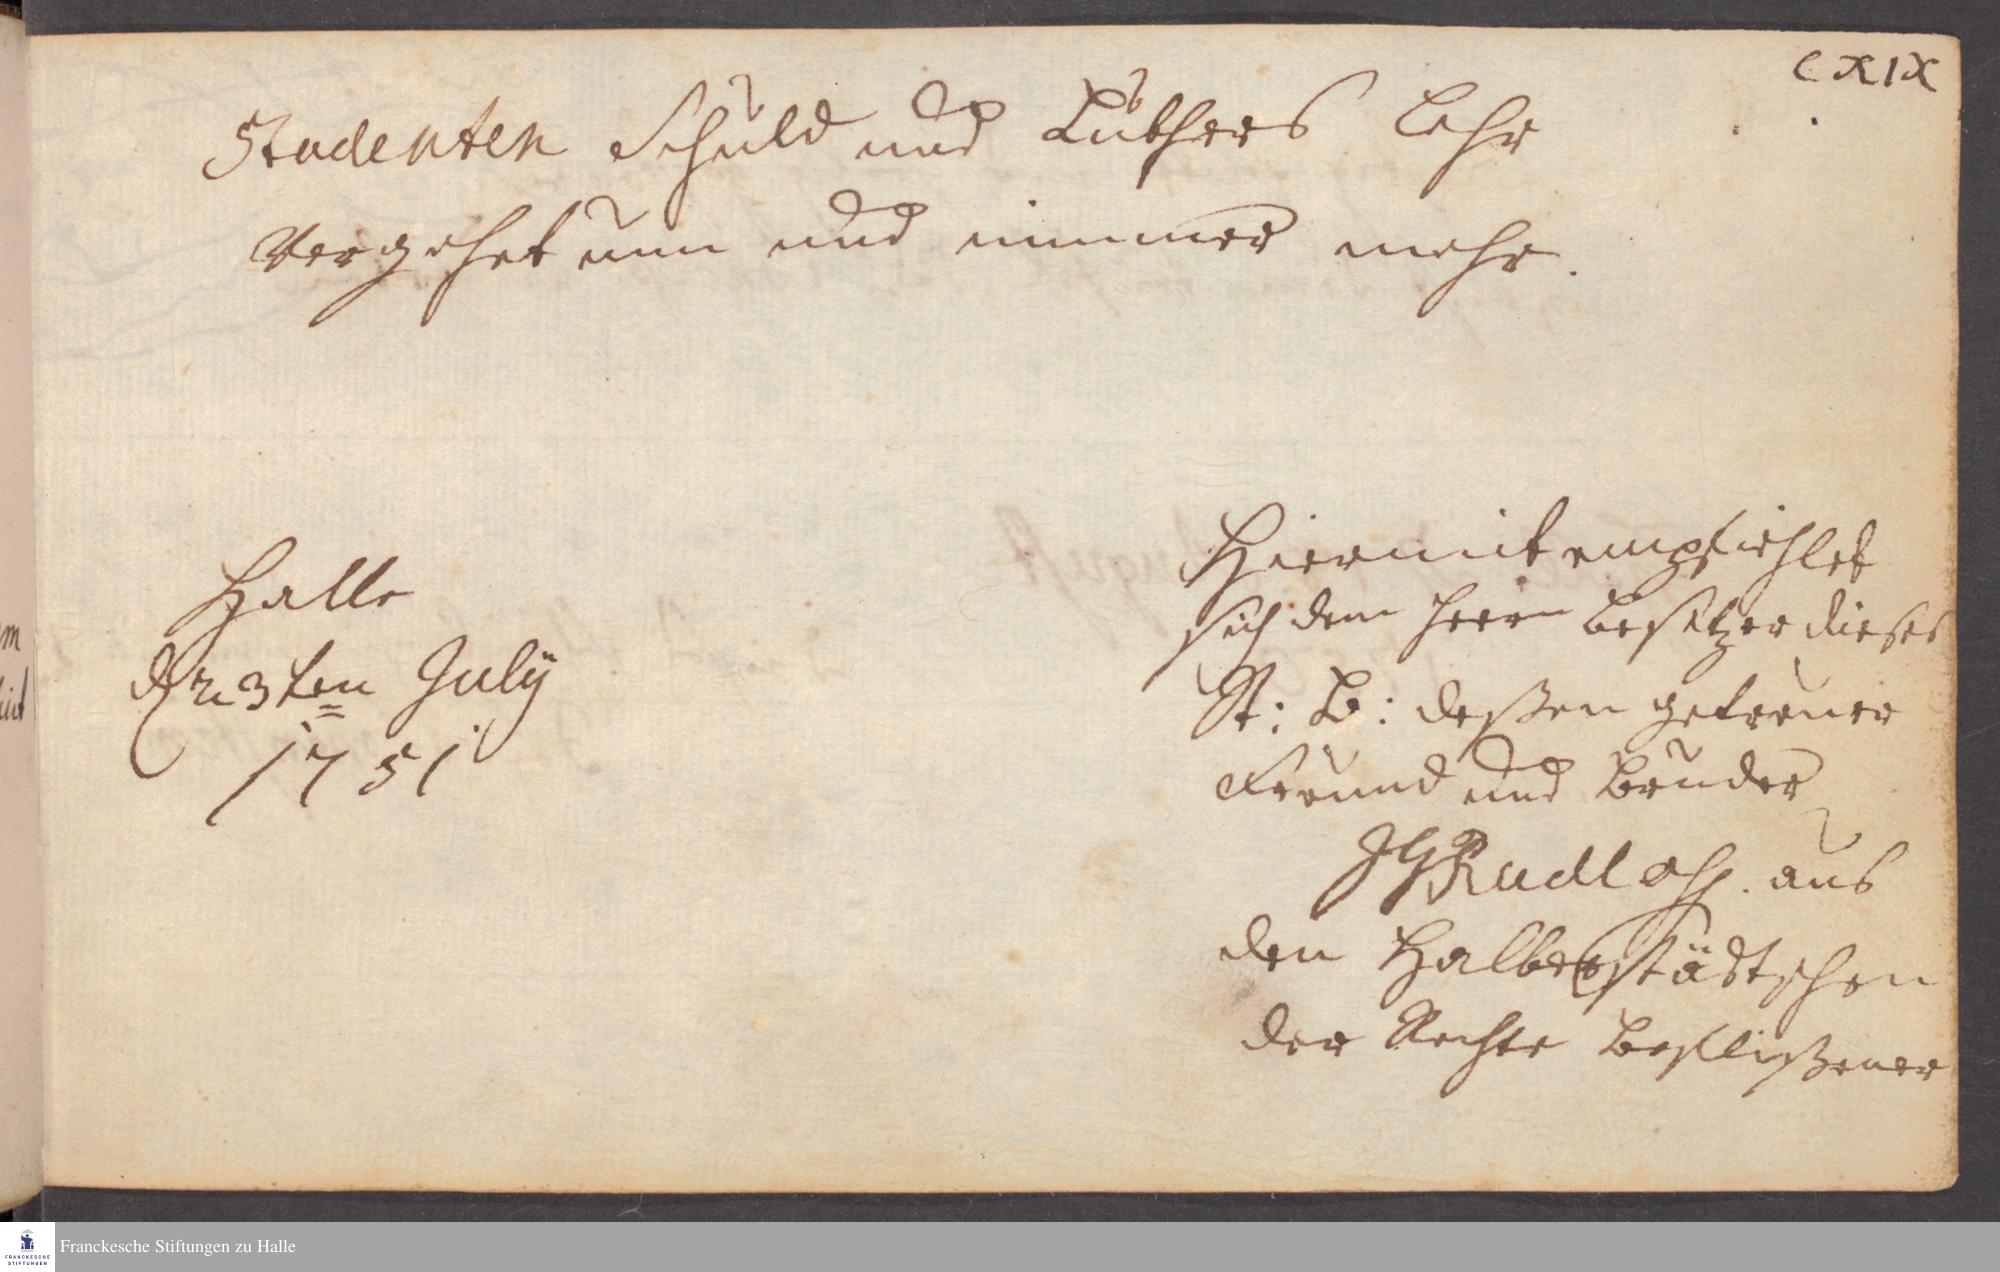 CXIX
Studenten Schuld und Luthers Lehr
Vergehet nun und nimmer mehr.
Halle
d 23ten July
1751
Hiermit empfiehlet
sich dem Herrn Besitzer dieses
St: B: deßen getreuer
Freund und Bruder
JG Rudloff. aus
den Halberstädtschen
der Rechte Beflißener
Franckesche Stiftungen zu Halle
FRANCKESCHE
STIFTUNGEN